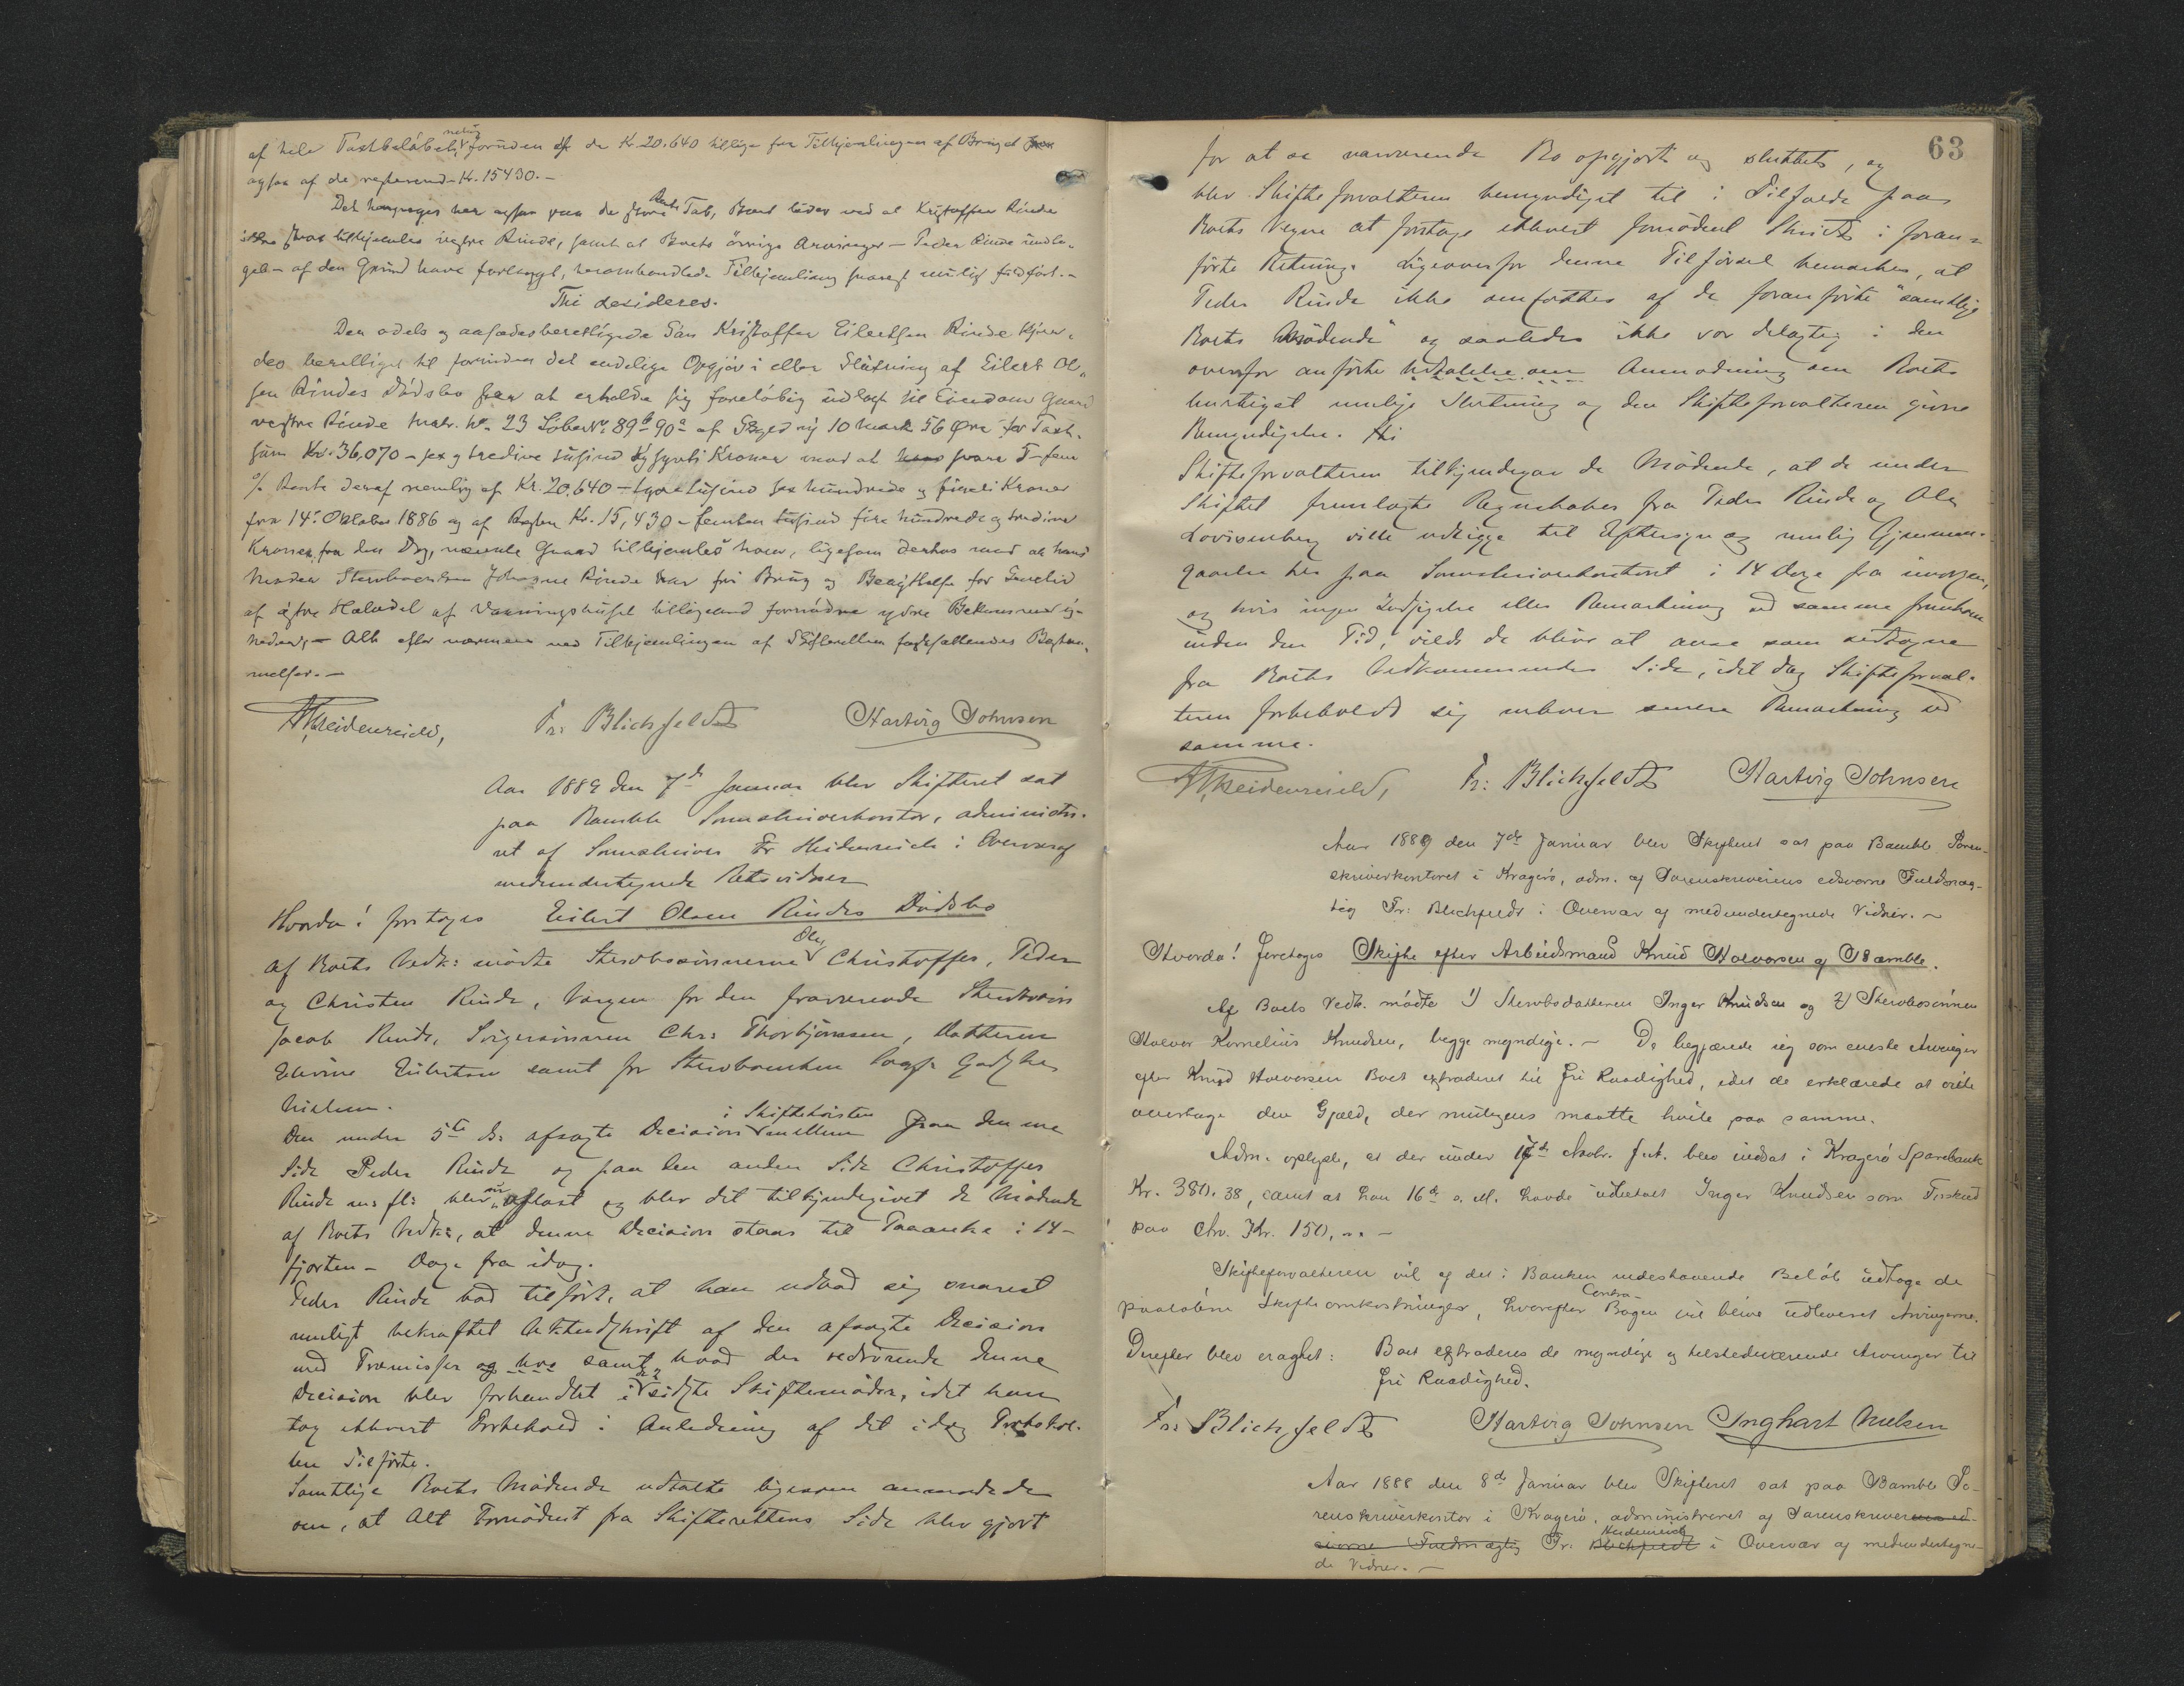 af hele Taxtbeløbet, nemlig foruden af de Kr. 20.640 tillige fra Tilkjendelsen af Bruget
ogsaa af de resterende Kr. 15430.-
Det
skal tilkjendes vestre Rinde, samt at Boets øvrige Arvinger - Peder Rinde undta-
gen - af den Grund have forlangt, Tilkjendelse snarest mulig fuldført.-
Thi desideres.
Den odels og aasædesberettigede Søn Kristoffer Eilertsen Rinde kjen-
des berettiget til forinden det endelige Opgjør i eller Slutning af Eilert Ol-
sen Rindes Dødsbo at erholde sig foreløbig udlagt til Eiendom Gaard
vestre Rinde Matr. No. 23 Løbe No. 89b 90a af Skyld ny 10 Mark 56 Øre for Taxt-
sum Kr. 36,070 - sex og tredive tusind og sytti Kroner mod at svare 5 - fem
% Rente deraf nemlig af Kr. 20.640 - tyve tusind sex hundrede og firti Kroner
fra 14de Oktober 1886 og af Resten Kr. 15,430 - femten tusind fire hundrede og tredive
Kroner fra den Dag, nævnte Gaard tilkjendes ham, ligesom derhos mod at hans
Moder Rinde har fri Brug og
af østre Halvdel af Vaaningshuset tilligemed fornødne ydre
- Alt efter nærmere ved Tilkjendelsen af Skifteretten fastsættendes Bestem-
melser. -
Heidenreich, Fr: Blichfeldt Hartvig Johnsen
Aar 1889 den 7de Januar blev Skifteret sat
paa Bamble Sorenskriverkontor, administre-
ret af Sorenskriver Fr Heidenreich i Overvær af
medundertegnede Retsvidner
Hvorda! foretoges Eilert Olsen Rindes Dødsbo
Af Boets Vedk: mødte Sterbosønnerne Ole, Christoffer, Peder
og Christen Rinde, Værgen for den fraværende Sterbosøn
Jacob Rinde, Svigersønnen Chr: Thorbjørnsen, Datteren
Eilertsen samt for Sterboenken
Nielsen.
Den under 5te ds: afsagte Decision i Skiftetvisten mellem paa den ene
Side Peder Rinde og paa den anden Side Christoffer
Rinde m: fl: blev nu oplæst og blev det tilkjendegivet de Mødende
af Boets Vedk:, at denne Decision staar til Paaanke i 14 -
fjorten - Dage fra idag.
Peder Rinde bad tilført, at han udbad sig snarest
muligt bekræftet Aktudskrift af den afsagte Decision
med Præmisser og hva samt hvad der vedrørende denne
Decision blev forhandlet i de 2 sidste Skiftemøder, idet han
tog ethvert Forbehold i Anledning af det idag Protokol-
len Tilførte.
Samtlige Boets Mødende udtalte ligesom anmodede
om, at Alt Fornødent fra Skifterettens Side blev gjort
63
for at se nærværende Bo opgjort og sluttet, og
blev Skifteforvalteren bemyndiget til i Tilfælde paa
Boets Vegne at foretage ethvert fornødent Skridt i foran-
førte Retning. Ligeoverfor denne Tilførsel bemærkes, at
Peder Rinde ikke omfattes af de foranførte "samtlige
Boets Mødende" og saaledes ikke var delagtig i den
ovenfor anførte Udtalelse om Anmodning om Boets
hurtigst mulige Slutning og den Skifteforvalteren givne
Bemyndigelse. Thi
Skifteforvalteren tilkjendegav de Mødende, at de under
Skiftet fremlagte Regnskaber fra Peder Rinde og Ole
Lovisenberg ville udligge til Eftersyn og mulig Gjennem-
gaaelse her paa Sorenskriverkontoret i 14 Dage fra imorgen,
og hvis ingen Indsigelse eller Bemærkning ved samme fremkom
inden den Tid, vilde de blive at anse som vedtagne
fra Boets Vedkommendes Side, idet dog Skifteforval-
teren forbeholdt sig enhver senere Bemærkning ved
samme.
Heidenreich, Fr: Blichfeldt Hartvig Johnsen
Aar 1889 den 7de Januar blev Skifteret sat paa Bamble Soren-
skriverkontoret i Kragerø, adm. af Sorenskriverens edsvorne Fuldmæg-
tig Fr: Blichfeldt i Overvær af medundertegnede Vidner. ~
Hvorda! Foretoges Skifte efter Arbeidsmand Knud Halvorsen af Bamble.
Af Boets Vedk. mødte 1) Sterbodatteren Inger Knudsen og 2) Sterbosønnen
Halvor Kornelius Knudsen, begge myndige. ~ De begjærede sig som eneste Arvinger
efter Knud Halvorsen Boet extraderet til fri Raadighed, idet de erklærede at ville
overtage den Gjæld, der muligens maatte hvile paa samme.
Adm. oplyste, at der under 17de Novbr. f. A. blev indsat i Kragerø Sparebank
Kr. 380.38, samt at han 16de s. M. havde udbetalt Inger Knudsen som Forskud
paa Arv Kr. 150, "" -
Skifteforvalteren vil af det i Banken indestaaende Beløb udtage de
paaløbne Skifteomkostninger, hvorefter Contra-Bogen vil blive udleveret Arvingerne.
Derefter blev eragtet: Boet extraderes de myndige og tilstedeværende Arvinger til
fri Raadighed.
Fr: Blichfeldt Hartvig Johnsen Inghart Nielsen
Aar 1888 den 8de Januar blev Skifteret sat paa Bamble So-
renskriverkontor i Kragerø, administreret af Sorenskriverens ed-
svorne Fuldmægtig Fr: Blichfeldt Heidenreich i Overvær af medundertegne-
de Vidner. -